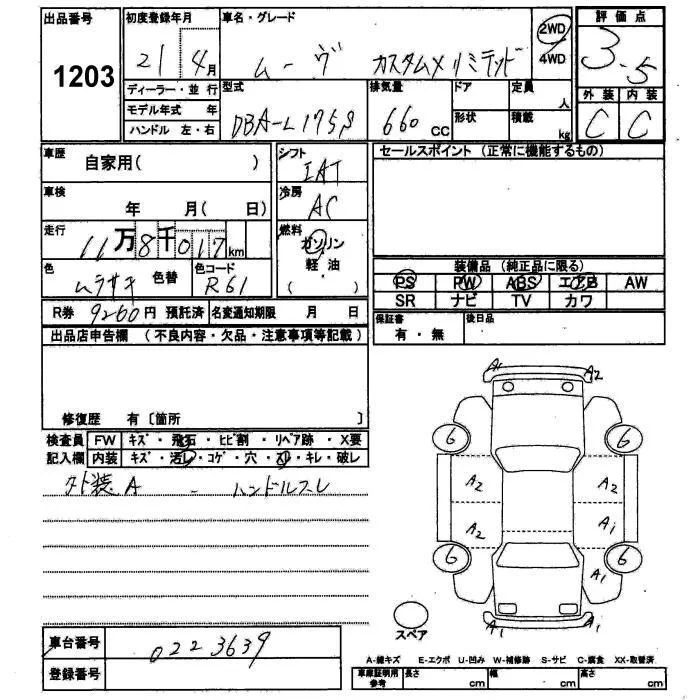 出品番号 初度登録年月 車名・グレード 評価点
1203 21 4月 ムーヴ カスタムX リミテッド 2WD 4WD 3.5
ディーラー・並行 型式 排気量 ドア 定員 人 外装 内装
モデル年式 年 DBA-L175S 660 CC 形状 積載 kg C C
ハンドル 左・右
車歴 自家用( ) シフト IAT セールスポイント (正常に機能するもの)
車検 年 月( 日) 冷房 AC
走行 11万8千017km 燃料 ガソリン 軽・油 ( )
色 ムラサキ 色替 色コード R61
装備品 (純正品に限る)
PS PW ABS エアB AW
SR ナビ TV カワ
R券 9260円 預託済 名変通知期限 月 日 保証書 有・無 後日品
出品店申告欄 (不良内容・欠品・注意事項等記載)
修復歴 有〔箇所 〕
検査員 FW キズ・飛石・ヒビ割・リペア跡・X要
記入欄 内装 キズ・汚レ・コゲ・穴・スレ・キレ・破レ
外装A - ハンドルスレ
A1 A2
6 6
A2 A2
A2 A1
6 6
A1
A1 A1
スペア
車台番号 0223639
登録番号
A-線キズ E-エクボ U-凹み W-補修跡 S-サビ C-腐食 XX-取替済
車庫証明用参考 長さ cm 幅 cm 高さ cm